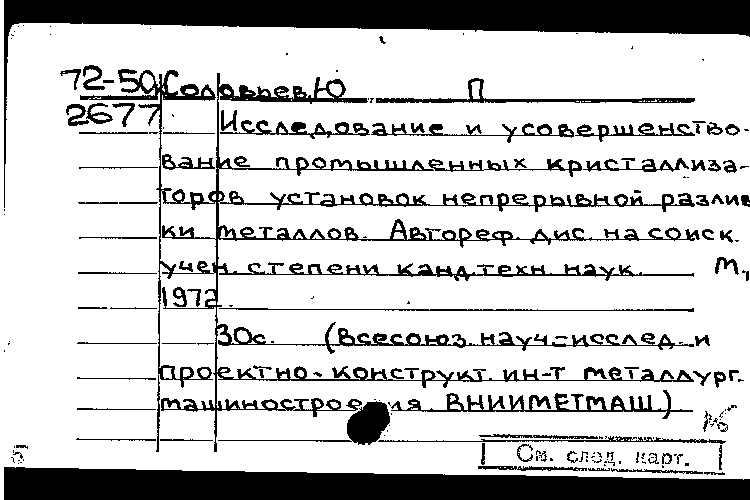 72-50 Соловьев, Ю П
2677 Исследование и усовершенство-
вание промышленных кристаллиза-
торов установок непрерывной разлив
ки металлов. Автореф. дис. на соиск.
учен. степени канд. техн. наук. М.,
1972.
30с. (Всесоюз. науч-исслед. и
проектно-конструкт. ин-т металлург.
машиностроения. ВНИИМЕТМАШ.)
См. след. карт.